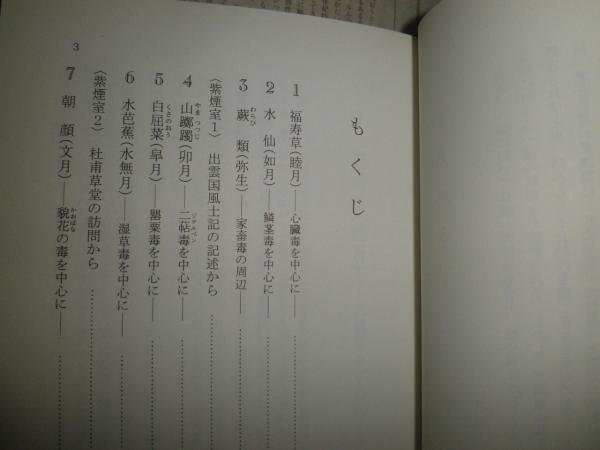 もくじ
1 福寿草(睦月)――心臓毒を中心に――
2 水仙(如月)――鱗茎毒を中心に――
3 蕨類(弥生)――家畜毒の周辺――
わらび
〈紫煙室1〉 出雲国風土記の記述から
4 山躑躅(卯月)――二帖毒を中心に――
やまつつじ
ジテルペン
5 白屈菜(皐月)――罌粟毒を中心に――
くさのおう
6 水芭蕉(水無月)――湿草毒を中心に――
〈紫煙室2〉 杜甫草堂の訪問から
7 朝顔(文月)――貌花の毒を中心に――
かおばな
3